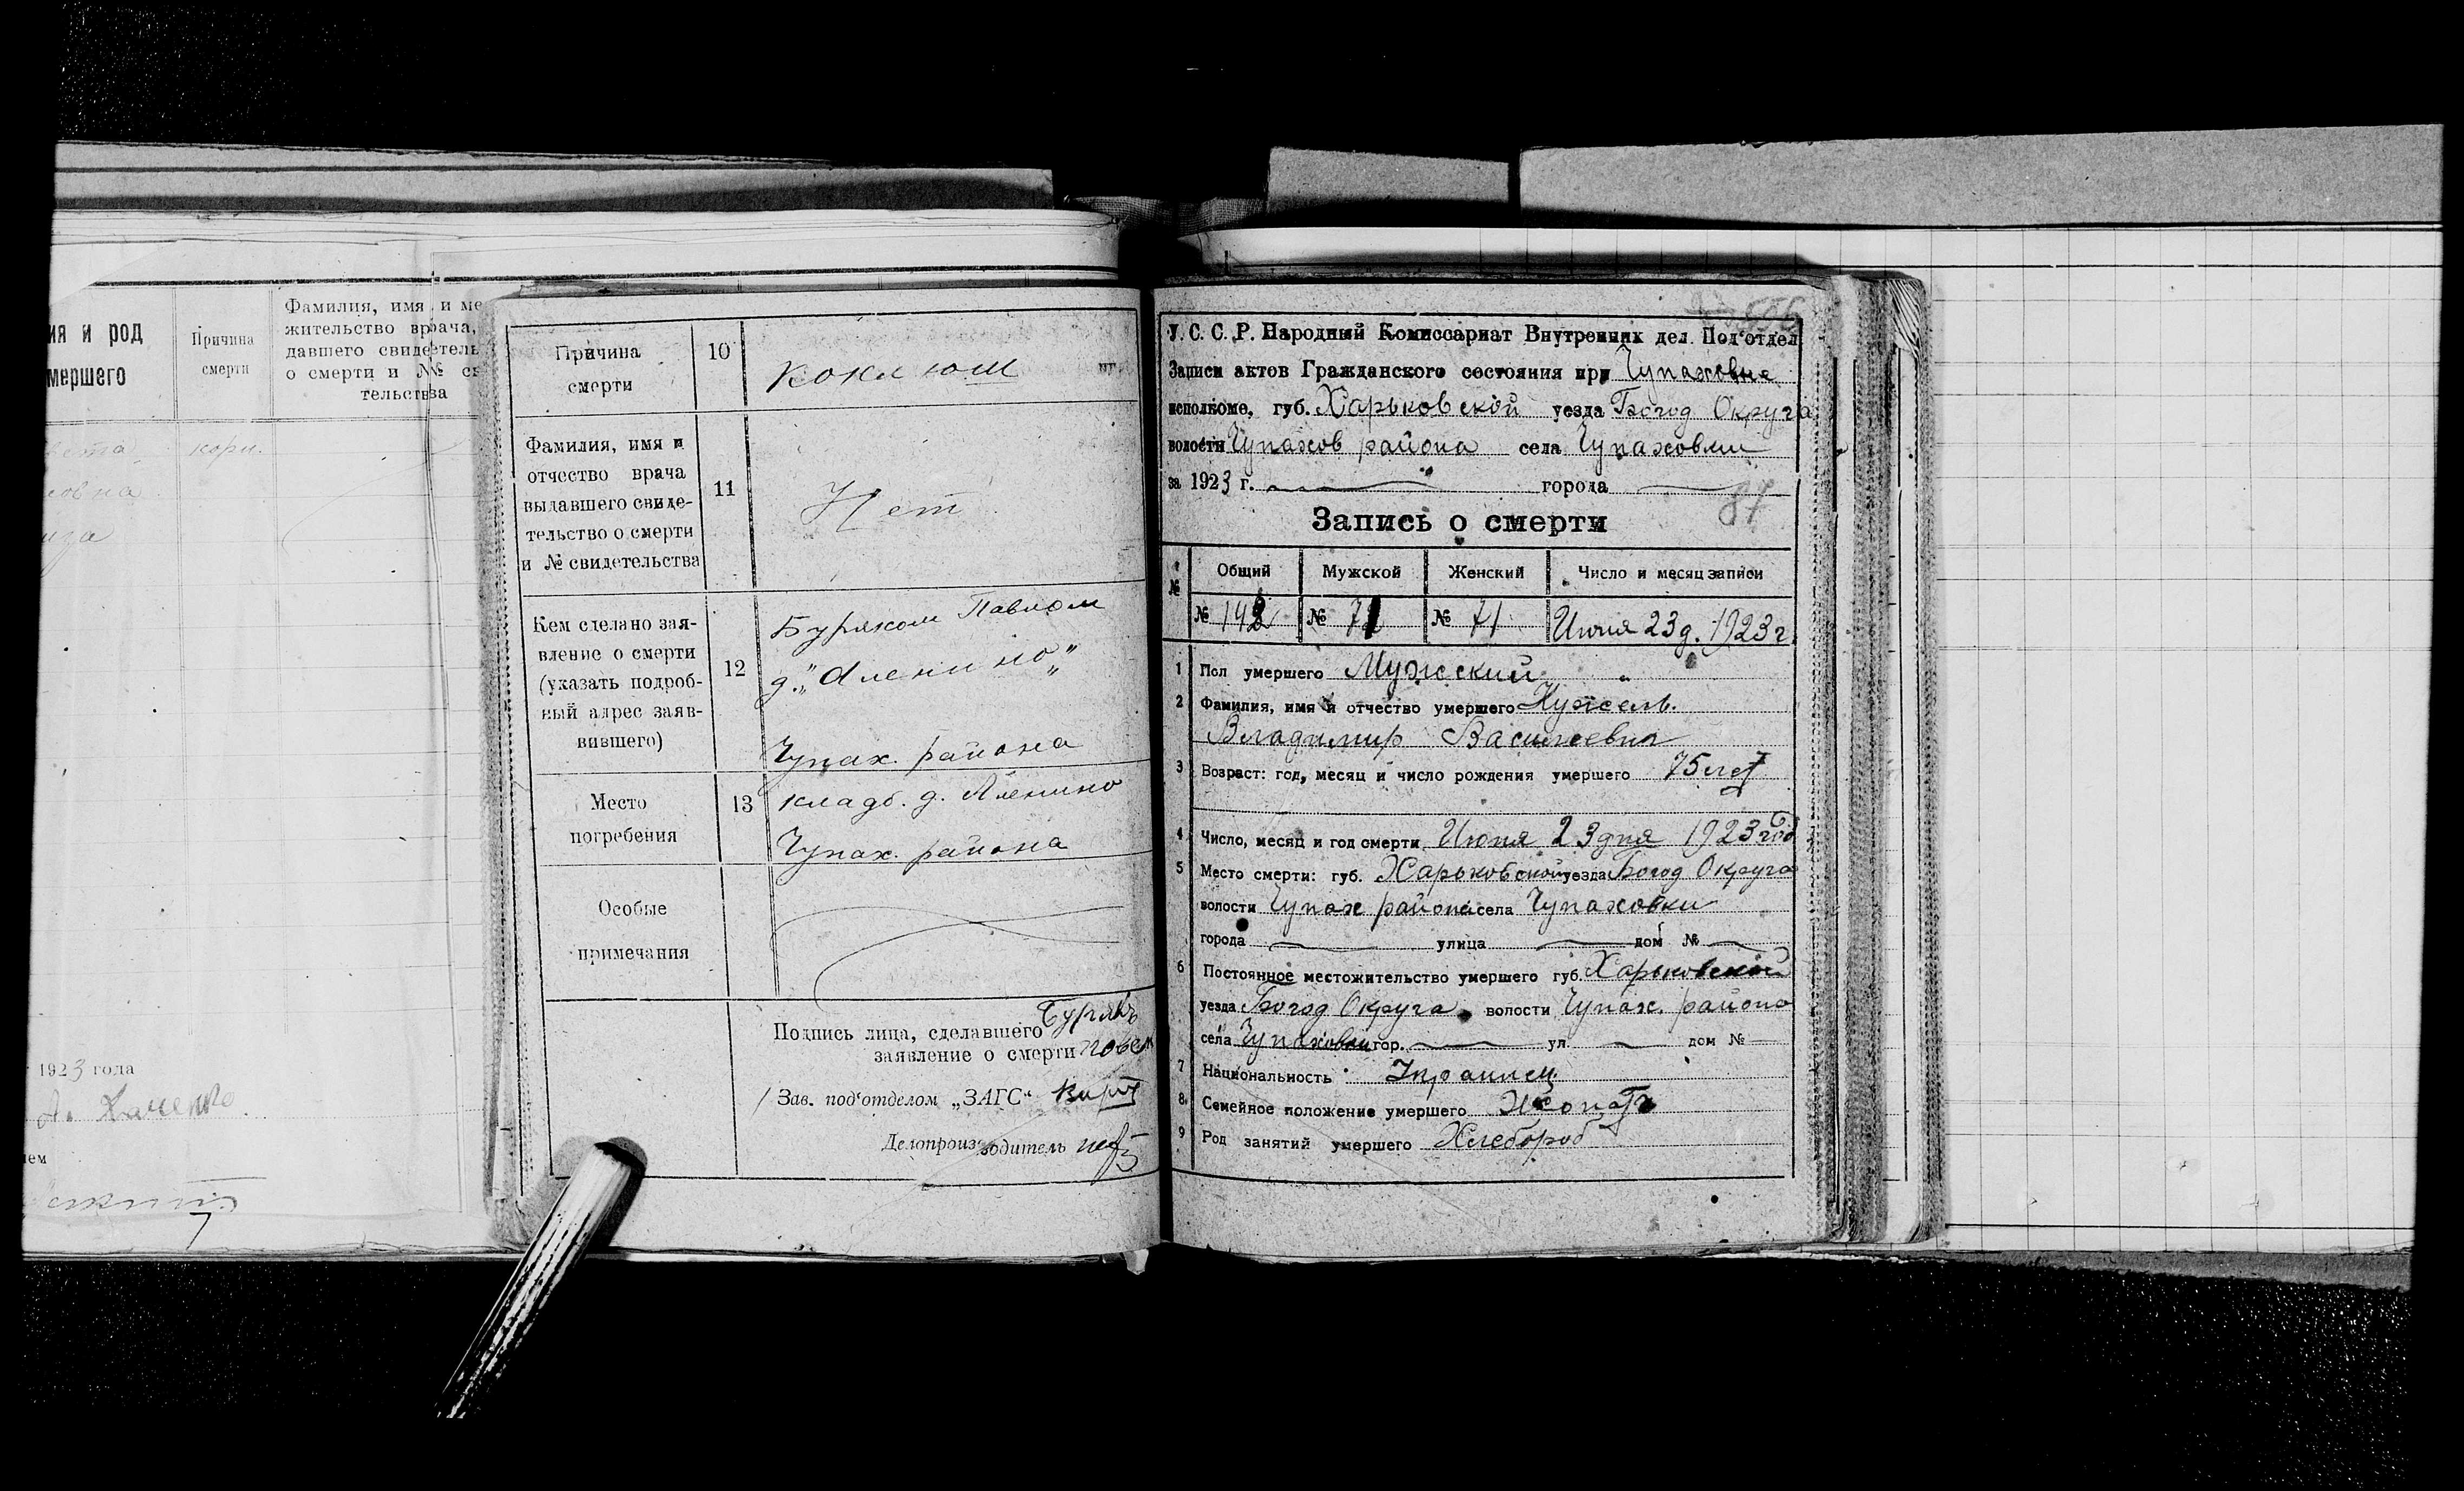 ия и род
мершего
Причина
смерти
Фамилия, имя и ме
жительство врача,
давшего свидетель
о смерти и №№ св
тельства
кори.
овна
1923 года
ем
Причина
смерти
10
коклюш
Фамилия, имя и
отчество врача
выдавшего свиде-
тельство о смерти
и № свидетельства
11
Нет
Кем сделано зая-
вление о смерти
(указать подроб-
ный адрес заяв-
вившего)
12
Буряком Павлом
д. „Аленино"
Чупах. района
Место
погребения
13
кладб. д. Аленино
Чупах. района
Особые
примечания
Подпись лица, сделавшего Буряк
заявление о смерти
Зав. под'отделом „ЗАГС"
Делопроизводитель
У. С. С. Р. Народный Комиссариат Внутренних дел. Под'отдел
Записи актов Гражданского состояния при Чупаховне
исполкоме, губ. Харьковской уезда Богод Округа
волости Чупахов района села Чупаховки
за 1923 г. города
87
Запись о смерти
№ Общий Мужской Женский Число и месяц записи
№ 142 № 71 № 71 Июня 23 д. 1923 г.
1 Пол умершего Мужский
2 Фамилия, имя и отчество умершего Кужель.
Владимир Василевич
3 Возраст: год, месяц и число рождения умершего 75 лет
4 Число, месяц и год смерти Июня 23 дня 1923 год
5 Место смерти: губ. Харьковской уезда Богод Округа
волости Чупах района села Чупаховки
города улица дом №
6 Постоянное местожительство умершего губ. Харьковской
уезда Богод Округа волости Чупах. района
села Чупаховки гор. ул. дом №
7 Национальность Украинец
8 Семейное положение умершего Жонат
9 Род занятий умершего Хлебороб